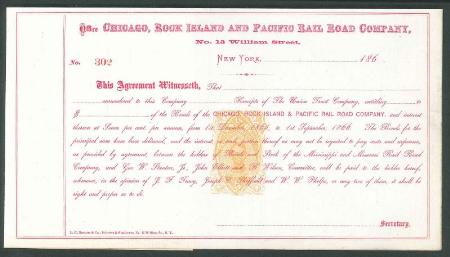 Office Chicago, Rock Island and Pacific Rail Road Company,
No. 13 William Street,
New York, 186
No. 302
This Agreement Witnesseth, That
surrendered to this Company Receipts of The Union Trust Company, entitling to
$ of the Bonds of the CHICAGO, ROCK ISLAND & PACIFIC RAIL ROAD COMPANY, and interest
thereon at Seven per cent. per annum, from 1st to 1st September, 1866. The Bonds for the
principal sum have been delivered, and the interest may not be required to pay costs and expenses,
as provided by agreement, between the holders of Bonds and Stock of the Mississippi and Missouri Rail Road
Company, and Committee, will be paid to the holder hereof,
whenever, in the opinion of J. F. Tracy, and W. W. Phelps, or any two of them, it shall be
right and proper so to do.
Secretary.